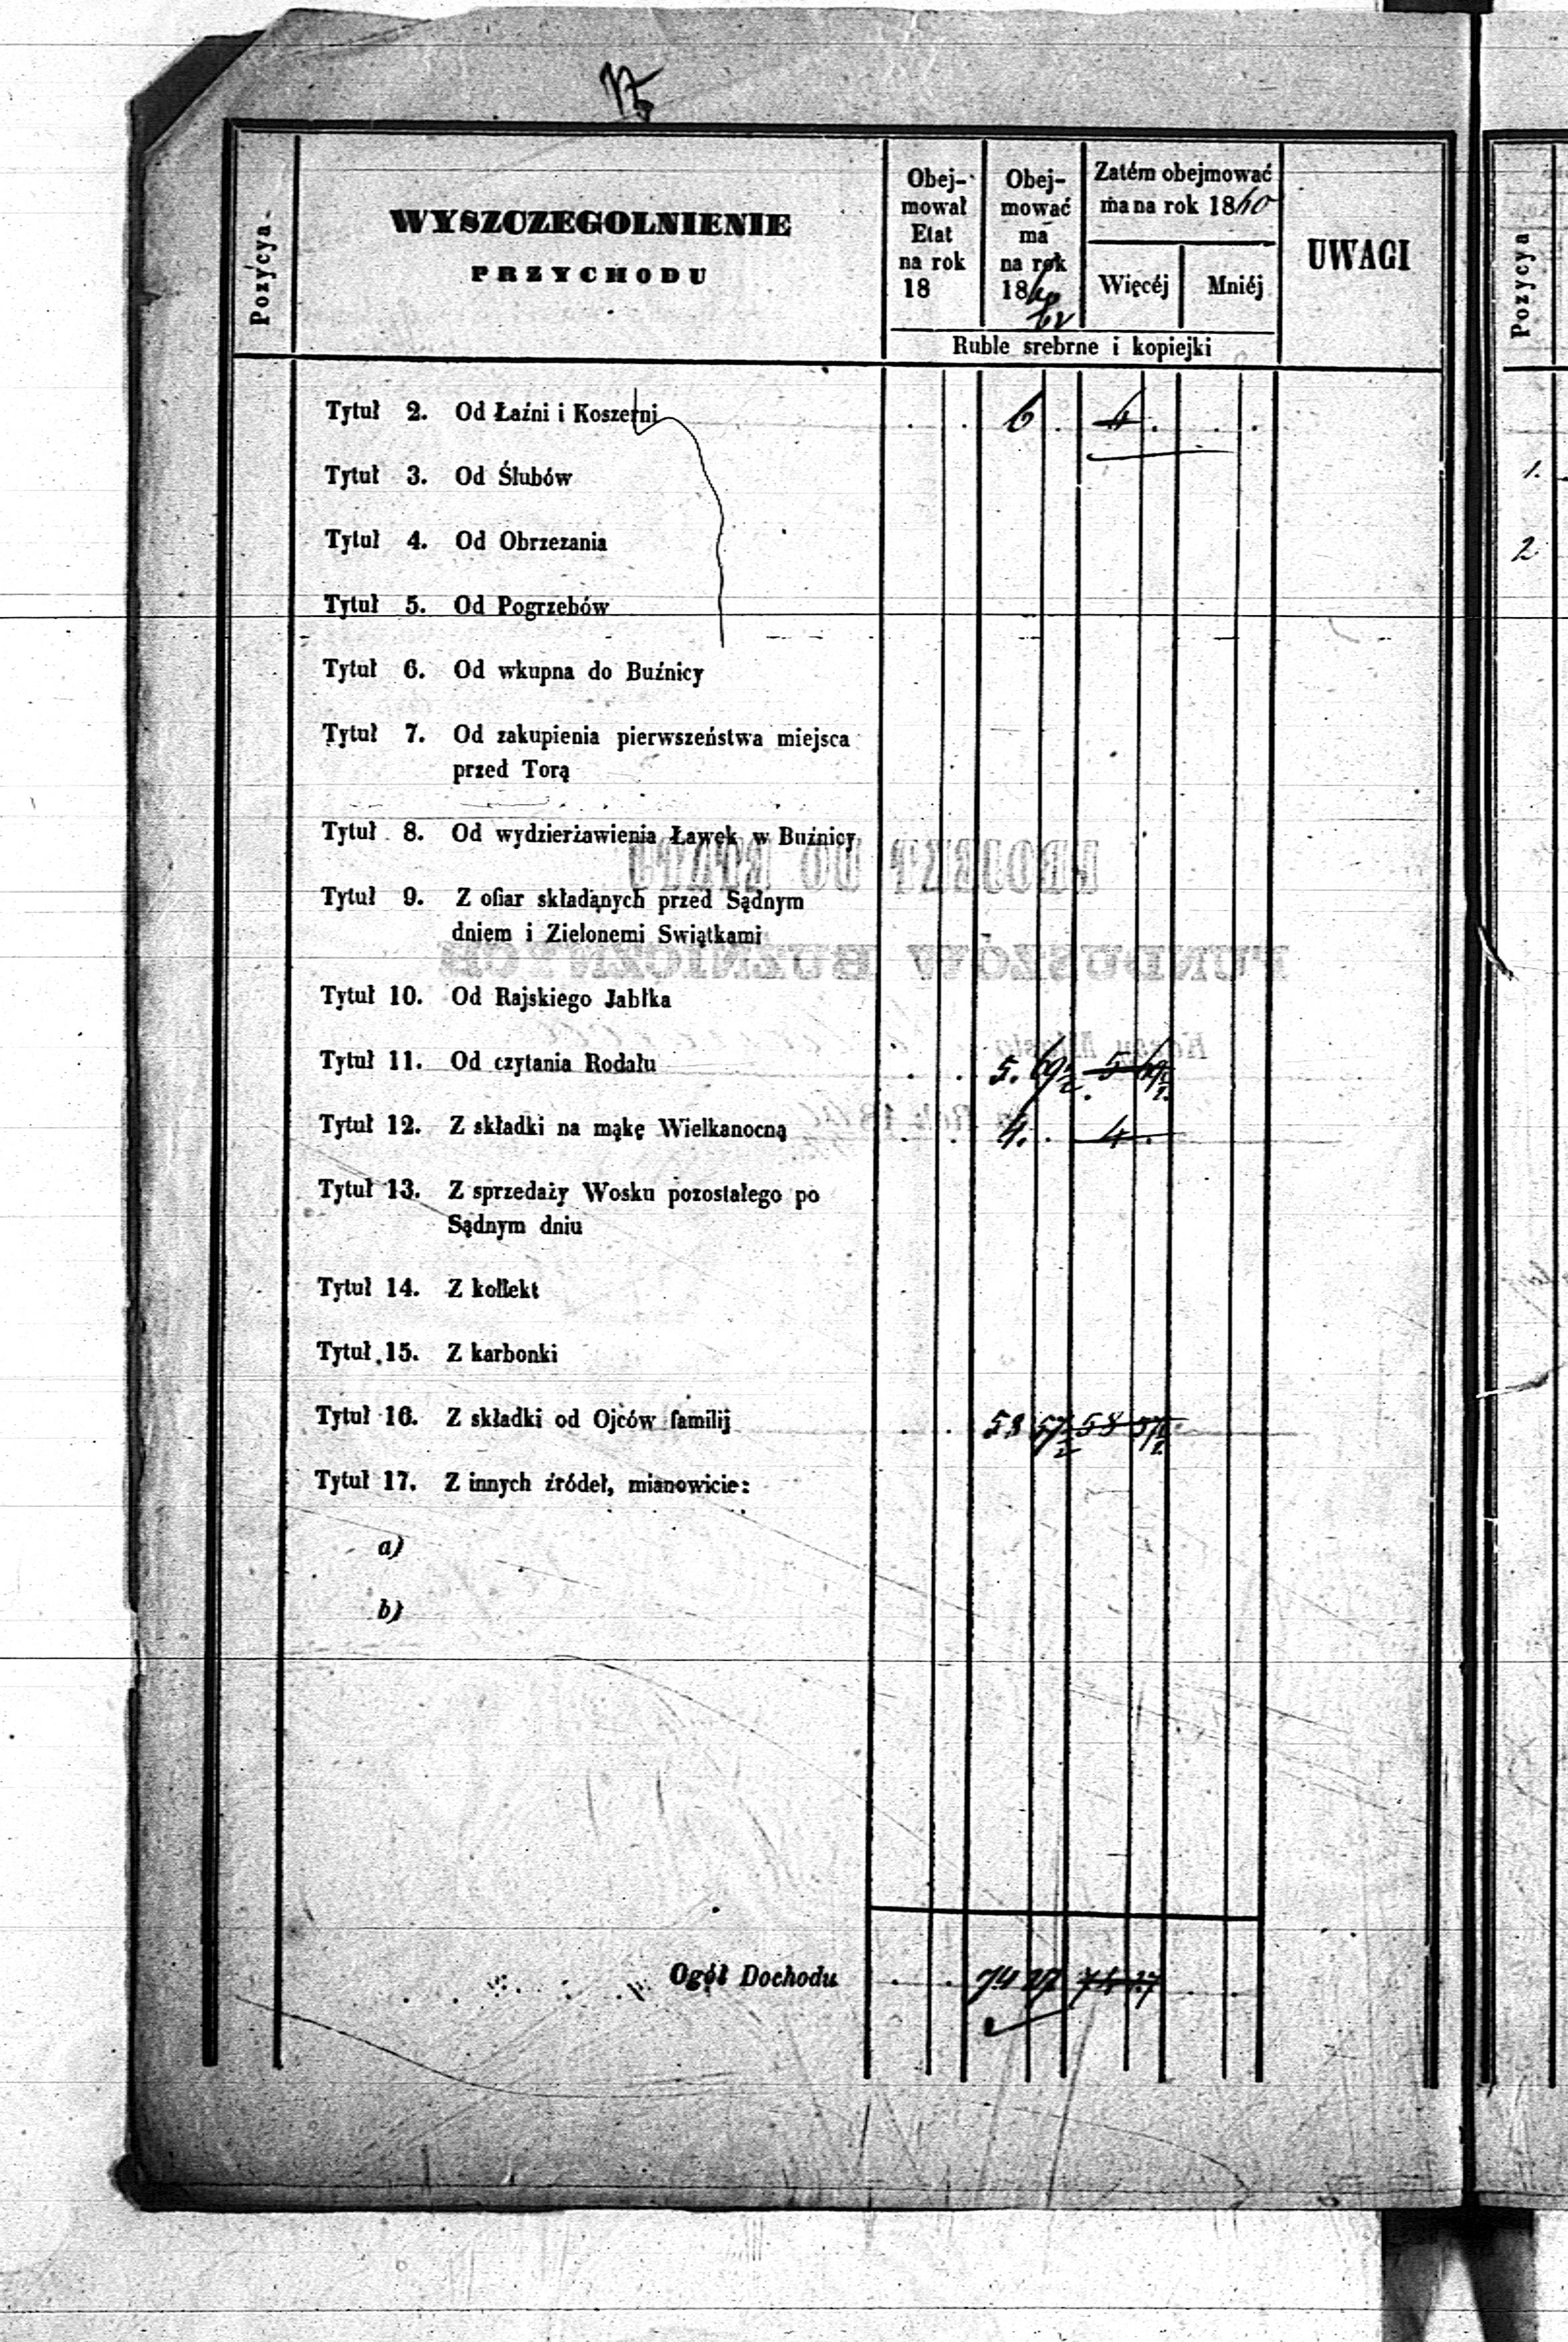 Pozycya
WYSZCZEGOLNIENIE
PRZYCHODU
Obej-
mował
Etat
na rok
18
Obej-
mować
ma
na rok
1860
62
Zatém obejmować
ma na rok 1860
Więcéj Mniéj
Ruble srebrne i kopiejki
UWAGI
Pozycya
Tytuł 2. Od Łaźni i Koszerni 6 . .
Tytuł 3. Od Ślubów
1.
Tytuł 4. Od Obrzezania
2
Tytuł 5. Od Pogrzebów
Tytuł 6. Od wkupna do Buźnicy
Tytuł 7. Od zakupienia pierwszeństwa miejsca
przed Torą
Tytuł 8. Od wydzierżawienia Ławęk w Buźnicy
PROJEKT DO ETATU
Tytuł 9. Z ofiar składanych przed Sądnym
dniem i Zielonemi Swiątkami
FUNDUSZÓW BUŹNICZNYCH
Tytuł 10. Od Rajskiego Jabłka
Tytuł 11. Od czytania Rodału 5. 69½ 5 69½
Tytuł 12. Z składki na mąkę Wielkanocną 4. . 4 .
Tytuł 13. Z sprzedaży Wosku pozostałego po
Sądnym dniu
Tytuł 14. Z kollekt
Tytuł 15. Z karbonki
Tytuł 16. Z składki od Ojców familij 58 57½ 58 57½
Tytuł 17. Z innych źródeł, mianowicie:
a)
b)
Ogół Dochodu 74 27 74 27